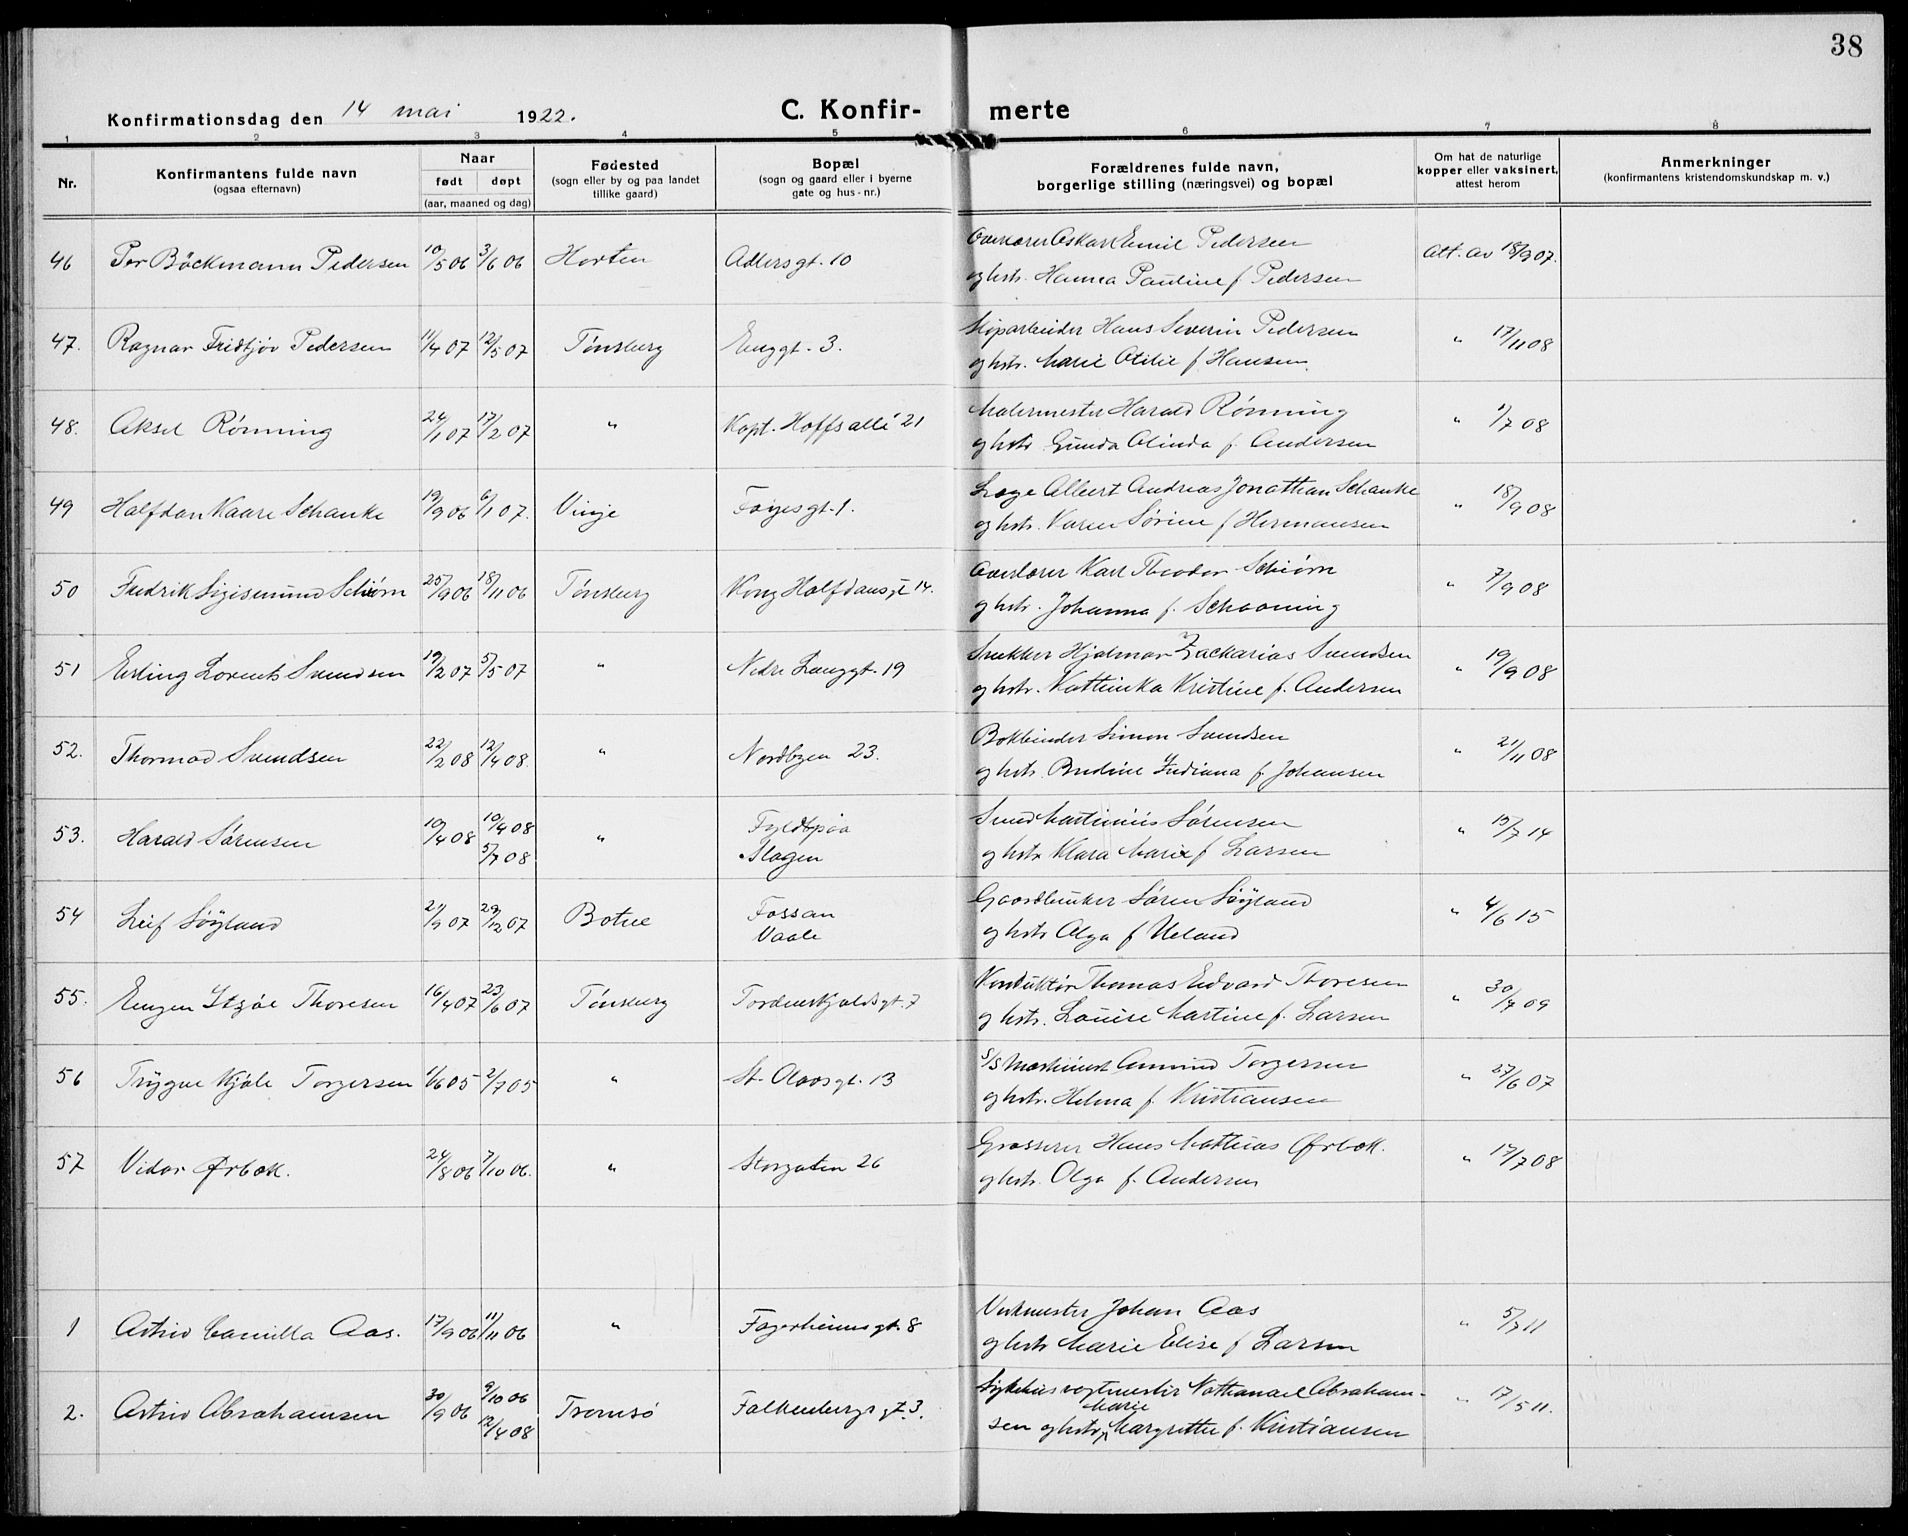 38
Konfirmationsdag den 14 mai 1922. C. Konfir- merte
1 2 3 4 5 6 7 8
Nr. Konfirmantens fulde navn (ogsaa efternavn) Naar født døpt (aar, maaned og dag) Fødested (sogn eller by og paa landet tillike gaard) Bopæl (sogn og gaard eller i byerne gate og hus-nr.) Forældrenes fulde navn, borgerlige stilling (næringsvei) og bopæl Om hat de naturlige kopper eller vaksinert, attest herom Anmerkninger (konfirmantens kristendomskundskap m. v.)
46 Per Böckmann Pedersen 10/5 06 3/6 06 Horten Adlersgt. 10 Overlærer Oskar Emil Pedersen att. av 18/9 07.
og hstr. Hanna Pauline f. Pedersen
47. Ragnar Fridtjov Pedersen 11/4 07 12/5 07 Tønsberg Enggt. 3. Hans Severin Pedersen " 17/11 08
og hstr. Marie Otilie f. Hansen.
48. Aksel Rönning 24/1 07 17/2 07 " Kapt. Hoffs allé 21 Malermester Harald Rönning " 1/7 08
og hstr. Gunda Olinda f. Andersen
49 Halfdan Kaare Schanke 19/9 06 6/1 07. Vinje Føyesgt. 1. Læge Albert Andreas Jonathan Schanke " 18/9 08
og hstr. Karen Sörine f. Hermansen
50 Fredrik Sigismund Schiörn 25/9 06 18/11 06 Tönsberg Kong Halfdansgt 14. Overlærer Karl Theodor Schiörn " 7/9 08
og hstr. Johanna f. Schaaning
51 Erling Lorents Svendsen 19/2 07 5/5 07 " Nedre Langgt. 19 Snekker Hjalmar Zackarias Svendsen " 19/9 08
og hstr. Kattinka Kristine f. Andersen
52. Thormod Svendsen 22/2 08 12/4 08. " Nordbyen 23. Bokbinder Simon Svendsen " 21/11 08
og hstr. Indiana f. Johansen
53. Harald Sørensen 19/4 08 19/4 08 " Smed Martinius Sörensen " 14
5/7 08 Slagen og hstr. Klara Marie f. Larsen
54 Leif Söyland 21/9 07 29/12 07 Botne Fossan Gaardbruker Sören Söyland " 4/6 15
Vaale og hstr. Olga f. Ueland
55. Eugen Thoresen 16/4 07 23/6 07 Tønsberg Tordenskjoldsgt. 7 Konduktör Thomas Edvard Thoresen " 30/7 09
og hstr. Louise Martine f. Larsen
56 Trygve Kjöle Torgersen 1/6 05 2/7 05 " St. Olavsgt. 13 S/S Maskinist Amund Torgersen " 27/6 07
og hstr. Helma f. Kristiansen
57 Vidar Ørbæk. 24/8 06 7/10 06. " Storgaten 26 Grosserer Hans Mathias Ørbæk. " 17/7 08
og hstr. Olga f. Andersen
1 Astrid Camilla Aas. 17/9 06 11/11 06 " Fagerheimsgt. 8 Verkmester Johan Aas " 5/7 11
og hstr. Marie Elise f. Larsen
2. Astrid Abrahamsen 30/9 06 9/10 06 Tromsö Falkenbergsgt. 3. Sykehusvagtmester Nathanael Abraham- " 17/5 11.
12/4 08 sen og hstr. Marie Margrethe f. Kristiansen